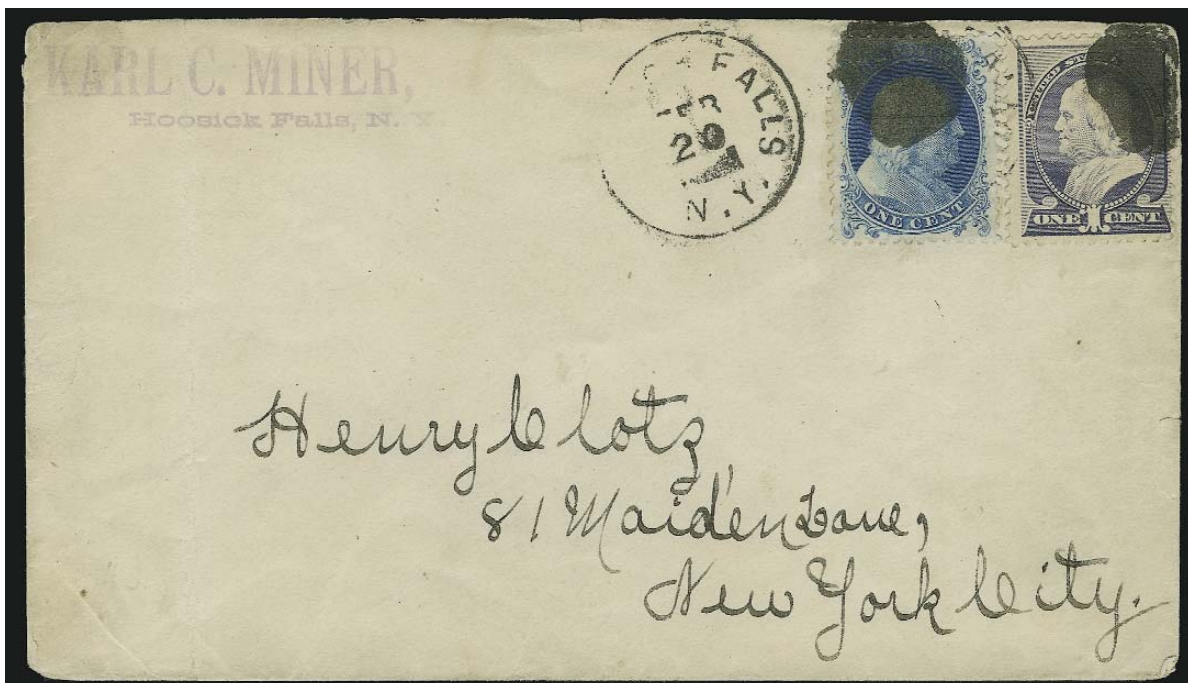 KARL C. MINER,
Hoosick Falls, N. Y.
FALLS
20
N.Y.
ONE CENT
ONE 1 CENT
Henry Clotz
81 Maiden Lane,
New York City.